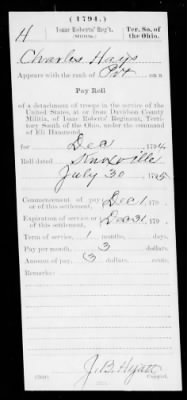 (1794.)
H
Isaac Roberts' Reg't,
MILITIA.
Ter. So. of
the Ohio.
Charles Hays
Appears with the rank of Pvt on a
Pay Roll
of a detachment of troops in the service of the
United States, at or from Davidson County
Militia, of Isaac Roberts' Regiment, Territory
South of the Ohio, under the command
of Eli Hammond,
for Dec , 1794
Roll dated Knoxville
July 30 , 1795
Commencement of pay or of this settlement, Dec 1 , 179 .
Expiration of service or of this settlement, Dec 31, 179 .
Term of service, 1 months, days.
Pay per month, 3 dollars, cents.
Amount of pay, 3 dollars, cents.
Remarks:
J. B. Hyatt
Copyist.